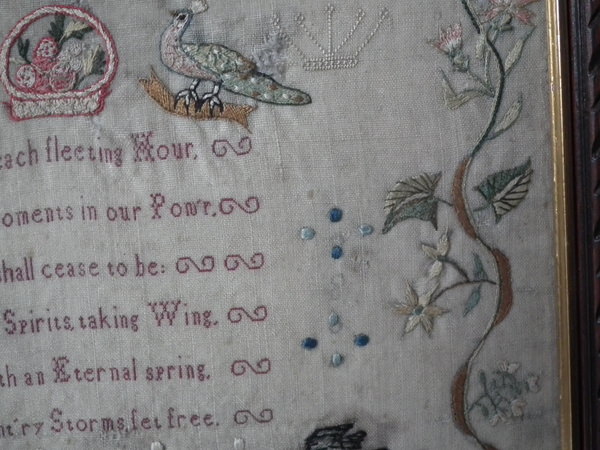 each fleeting Hour,
oments in our Pow'r,
shall cease to be:
Spirits, taking Wing,
th an Eternal spring,
nt'ry Storms, set free.